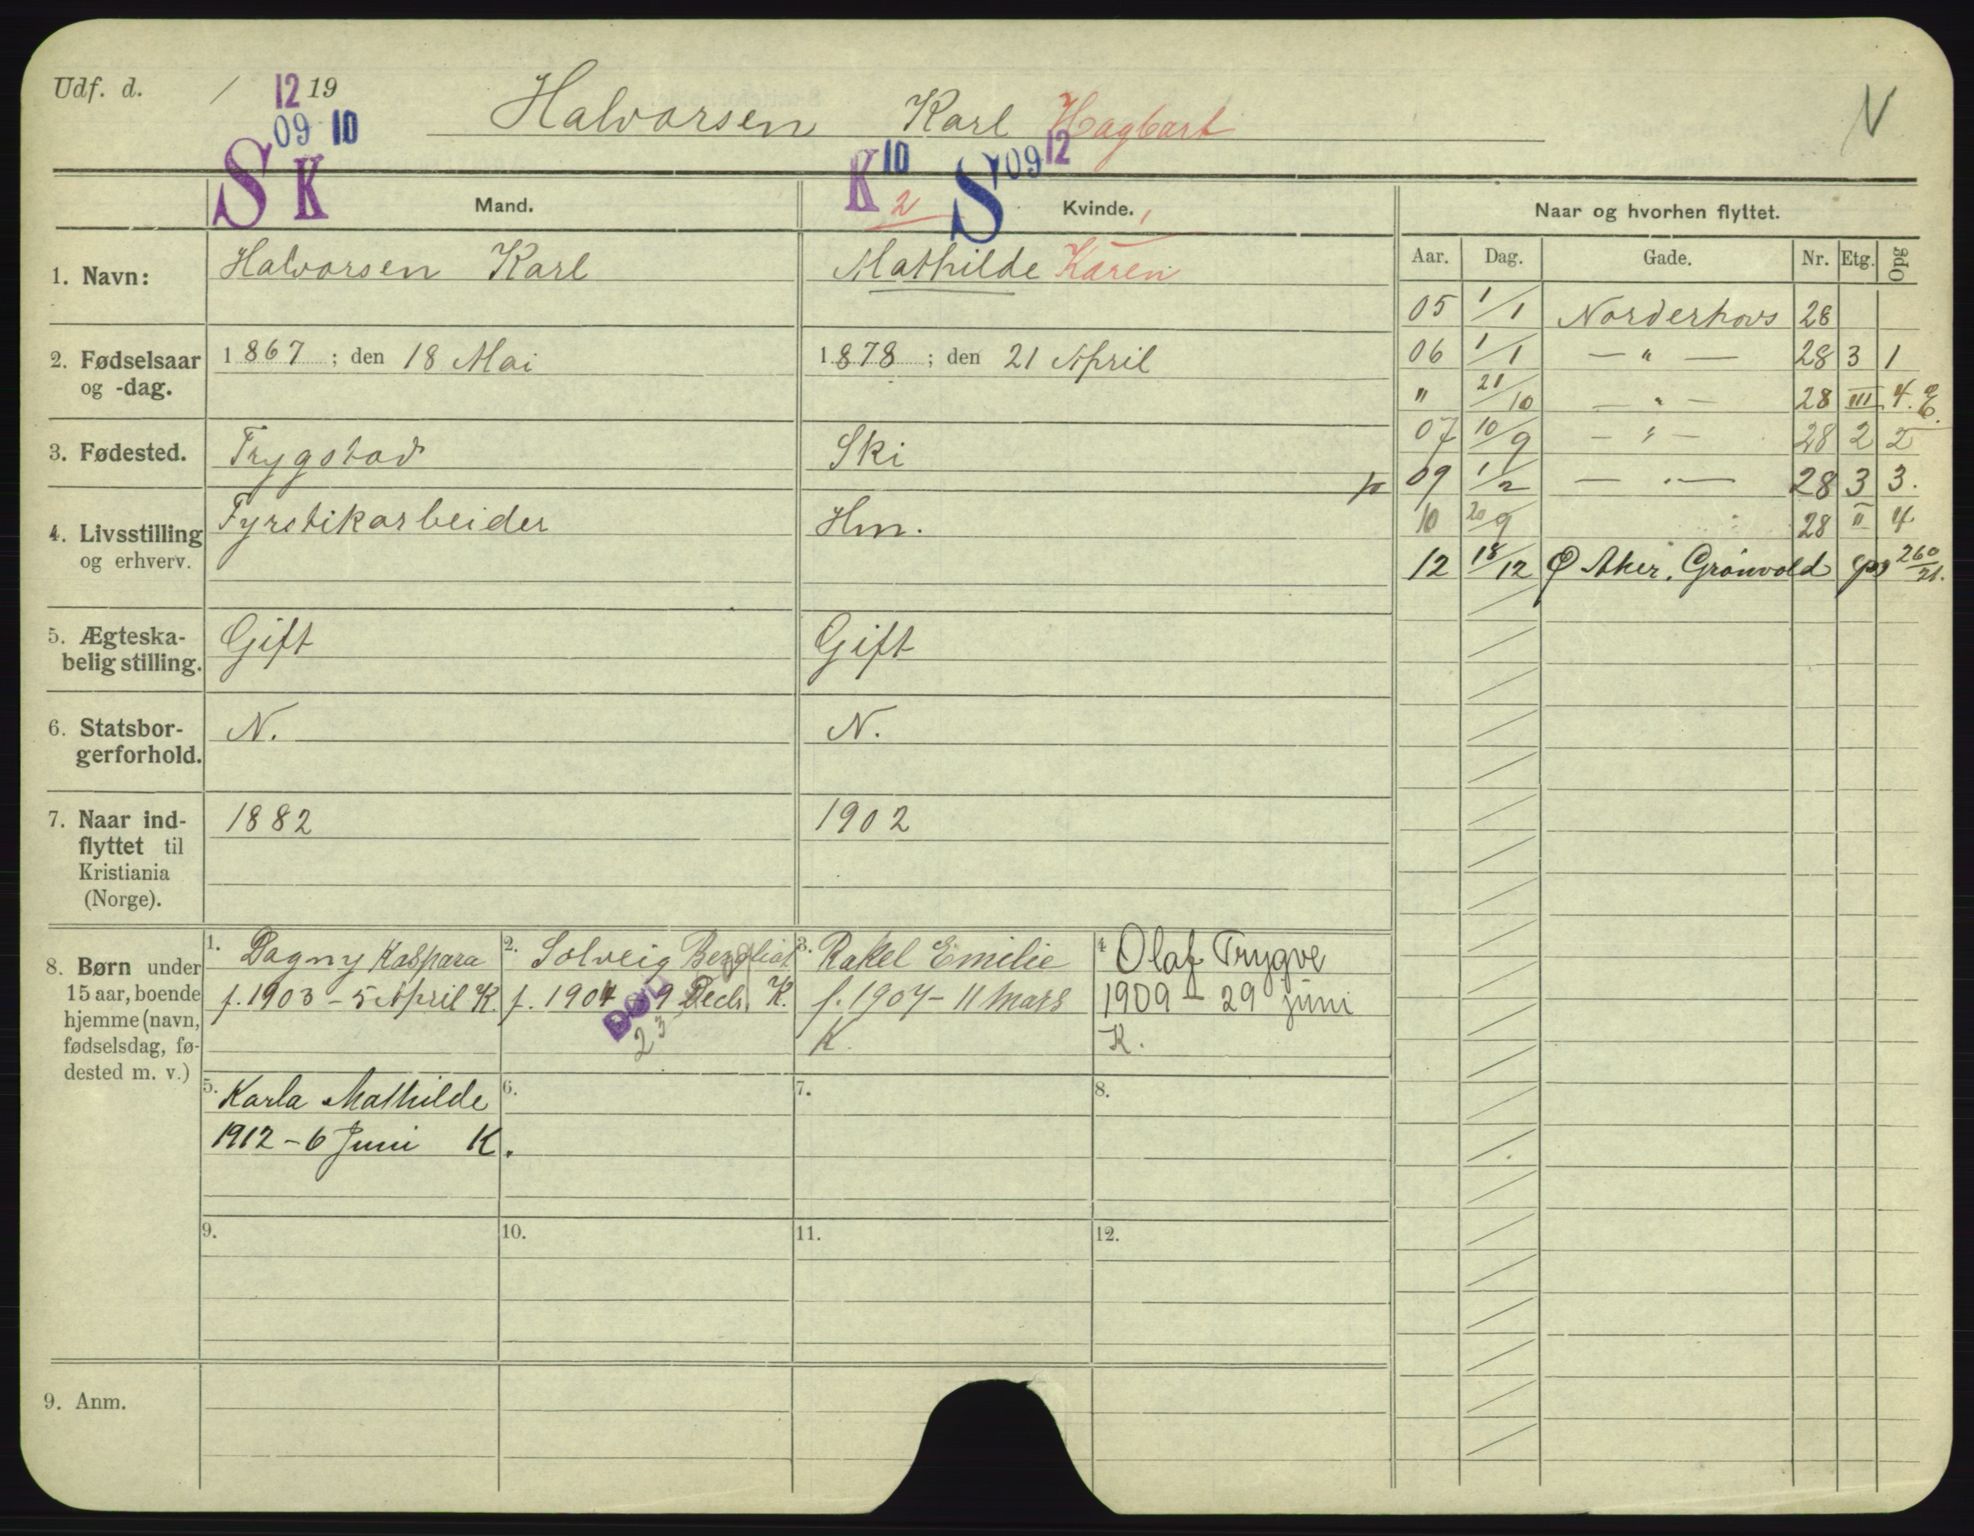 Udf. d. / 12 19
09 10
Halvorsen Karl Hagbart
N
S K
Mand.
K 10 2 S 09 12
Kvinde. 1
Naar og hvorhen flyttet.
1. Navn:
Halvorsen Karl
Mathilde Karen
Aar. Dag. Gade. Nr. Etg. Opg
05 1/1 Norderhovs 28
2. Fødselsaar og -dag.
1867 ; den 18 Mai
1878 ; den 21 April
06 1/1 — " — 28 3 1
" 21/10 — " — 28 III 4.
07 10/9 — " — 28 2 2
3. Fødested.
Trygstad
Ski
09 1/2 — " — 28 3 3.
4. Livsstilling og erhverv.
Fyrstikarbeider
Hm.
10 20/9 28 II 4
12 18/12 Ø Aker. Grønvold 260/21.
5. Ægteska-
belig stilling.
Gift
Gift
6. Statsbor-
gerforhold.
N.
N.
7. Naar ind-
flyttet til
Kristiania
(Norge).
1882
1902
8. Børn under
15 aar, boende
hjemme (navn,
fødselsdag, fø-
dested m. v.)
1. Dagny Kaspara
f. 1903 – 5 April K.
2. Solveig Bergliot
f. 1904 – 9 Decb. K.
DØD
23
3. Rakel Emilie
f. 1907 – 11 Mars
K.
4 Olaf Trygve
1909 – 29 juni
K.
5. Karla Mathilde
1912 – 6 Juni K.
6.
7.
8.
9.
10.
11.
12.
9. Anm.